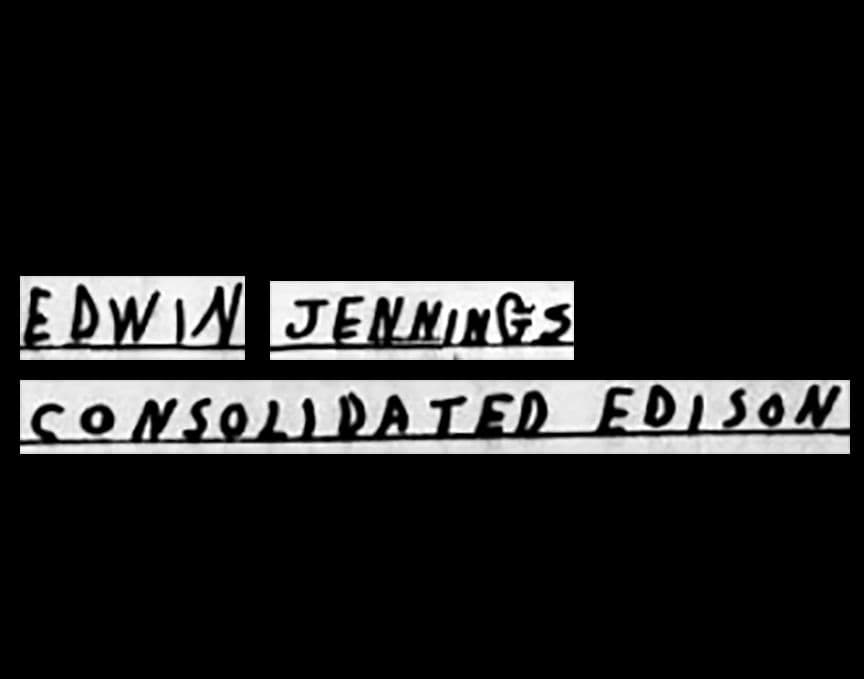 EDWIN JENNINGS
CONSOLIDATED EDISON